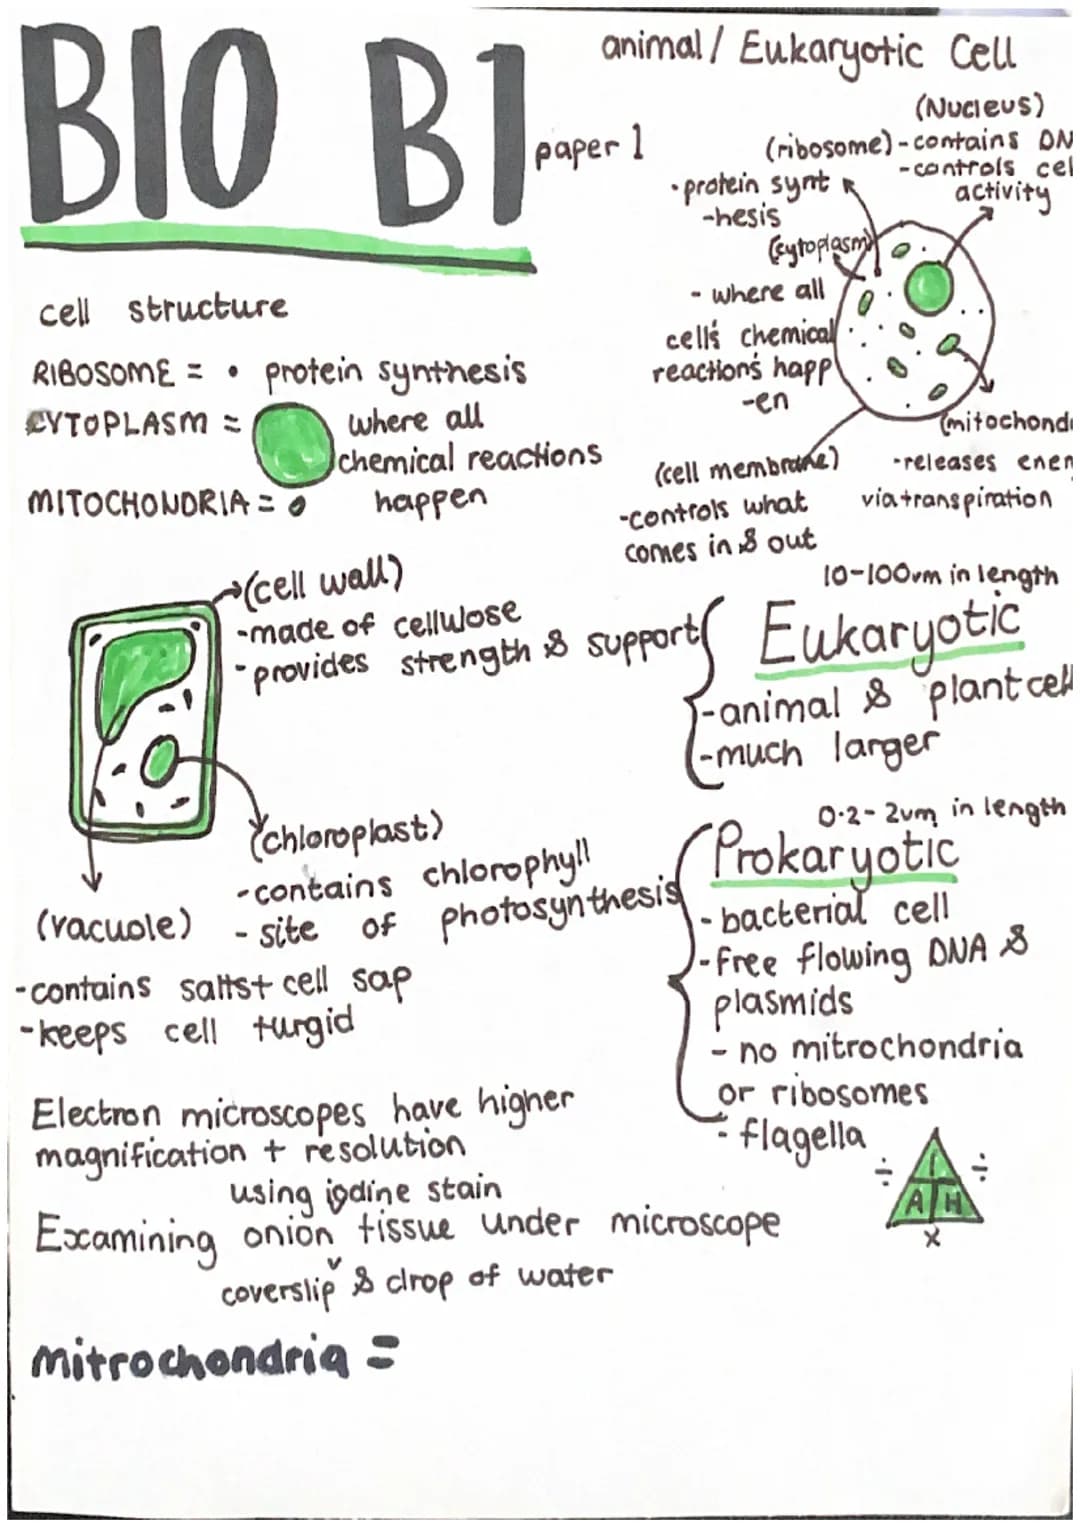 BIO B1
paper 1
animal / Eukaryotic Cell
(Nucleus)
- contains DN
- controls cel
activity
(ribosome)
• protein synt
-hesis
(cytoplasm)
- where all
cell's chemical
reactions happ
-en
(mitochond
-releases ener
via transpiration
(cell membrane)
-controls what
comes in & out
cell structure
RIBOSOME = • protein synthesis
CYTOPLASM = where all
chemical reactions
happen
MITOCHONDRIA =
(cell wall)
-made of cellulose
-provides strength & support
(chloroplast)
-contains chlorophyll
- site of photosynthesis
(vacuole)
-contains salts+ cell sap
-keeps cell turgid
10-100um in length
Eukaryotic
-animal & plant cell
-much larger
0.2- 2um in length
Prokaryotic
- bacterial cell
-free flowing DNA &
plasmids
- no mitrochondria
or ribosomes
- flagella
Electron microscopes have higher
magnification + resolution
using iodine stain
Examining onion tissue under microscope
coverslip & drop of water
÷ I ÷
A M
x
mitrochondria =